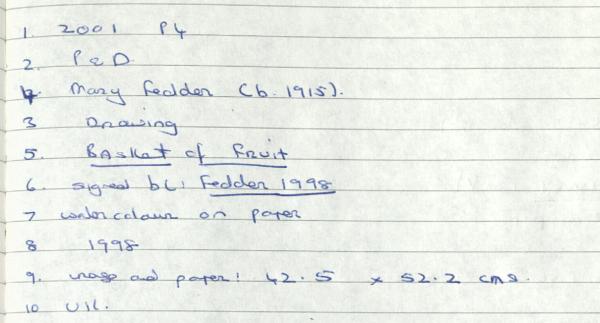 1. 2001 P4
2. P & D.
4. Mary Fedder (b. 1915).
3 Drawing
5. Basket of Fruit
6. signed bl: Fedder 1998
7 watercolour on paper
8 1998
9. image and paper: 42.5 x 52.2 cms.
10 UK.